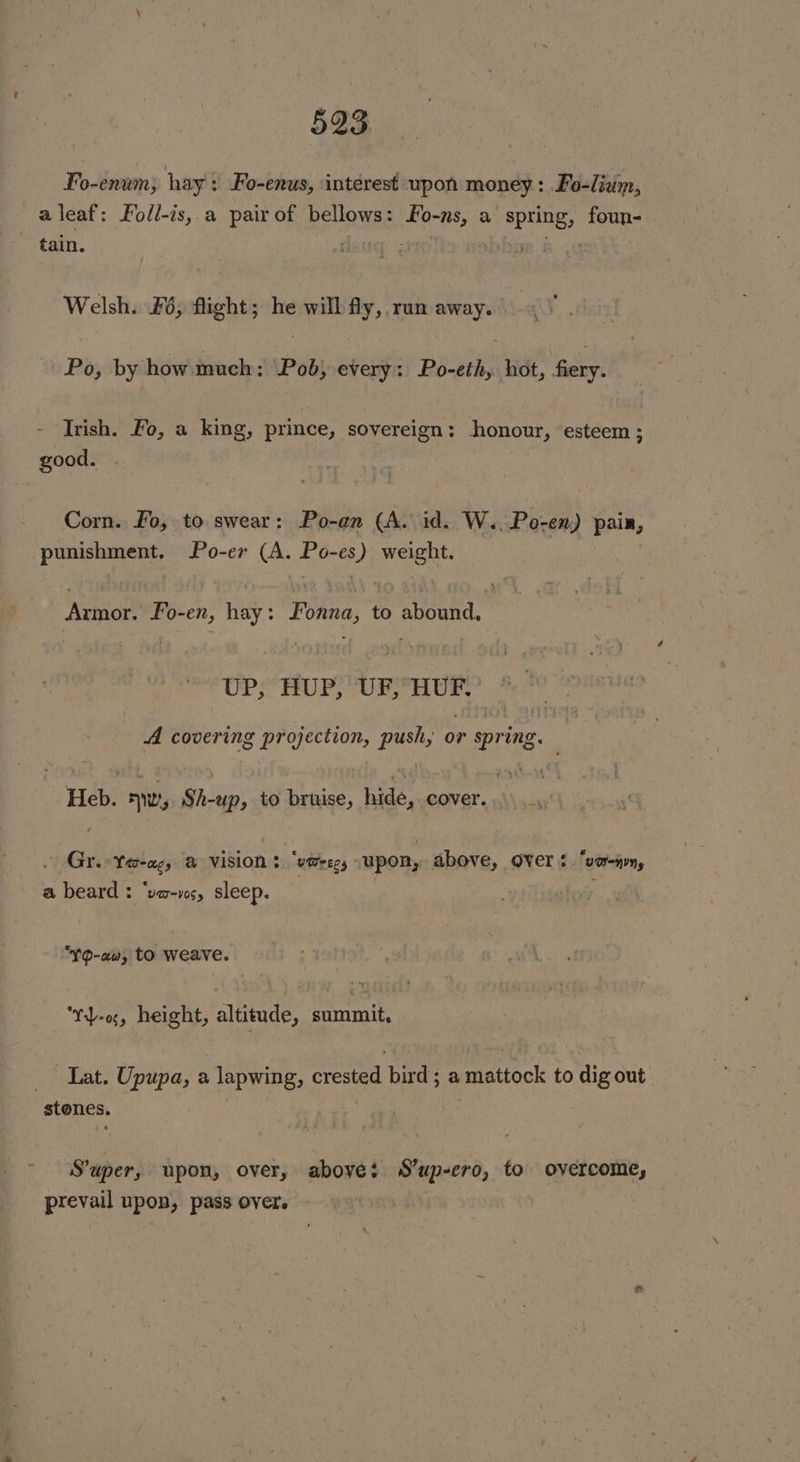 523
Fo-enum, hay: Fo-enus, interest upon money: Fo-lium,
a leaf: Foll-is, a pair of bellows: Fo-ns, a spring, foun-
tain.
Welsh. Fó, flight; he will fly, run away.
Po, by how much: Pob, every: Po-eth, hot, fiery.
Irish. Fo, a king, prince, sovereign: honour, esteem;
good.
Corn. Fo, to swear: Po-an (A. id. W. Po-en) pain,
punishment. Po-er (A. Po-es) weight.
Armor. Fo-en, hay: Fonna, to abound.
UP, HUP, UF, HUF.
A covering projection, push, or spring.
Heb. שוף, Sh-up, to bruise, hide, cover.
Gr. Υϖ-αρ, a vision: ‘υϖ-ερ, upon, above, over: ‘υϖ-ηνη,
a beard: ‘υϖ-νος, sleep.
‘Υφ-αω, to weave.
‘Υψ-ος, height, altitude, summit.
Lat. Upupa, a lapwing, crested bird; a mattock to dig out
stones.
S'uper, upon, over, above: S'up-ero, to overcome,
prevail upon, pass over.